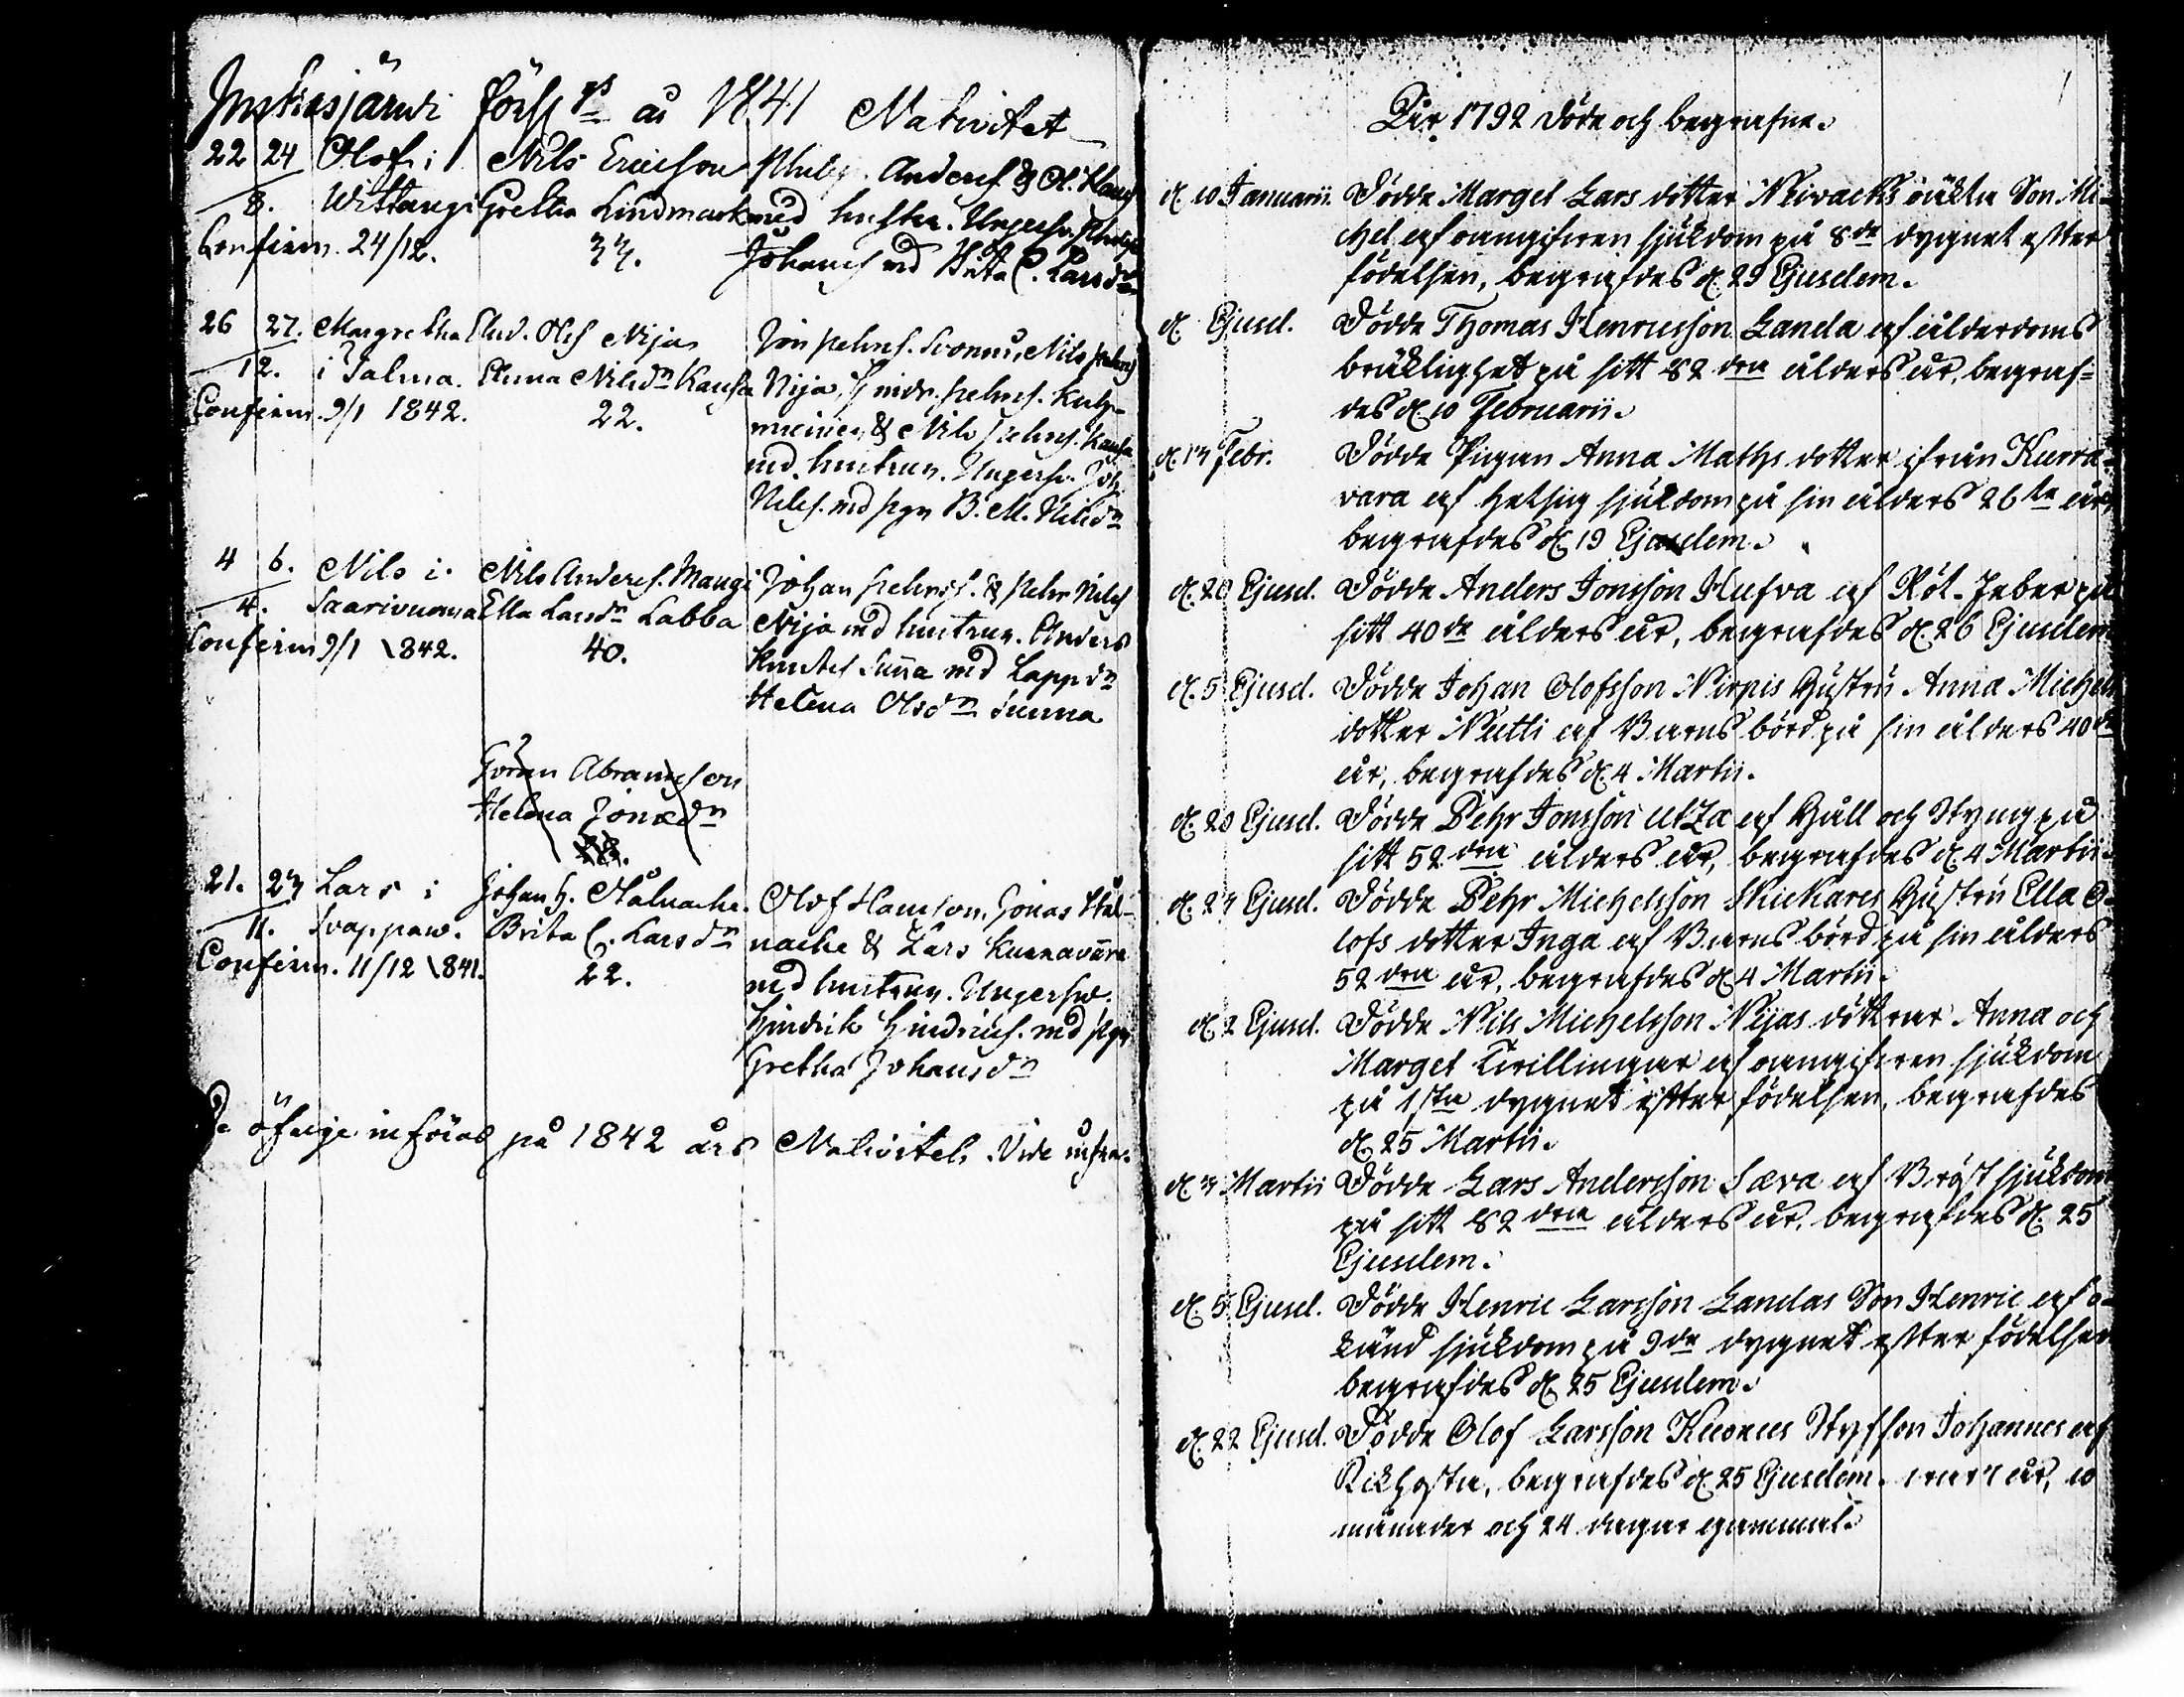 Jukkasjärvi förs. gs år 1841 Nativitet
22 24 Olof i Nils Ericsson Philip. Andersf. & Ol. Hansf
8. Wittangi Gretha Lindmark med hustrur. Ungersv. Philip
Confirm. 24/12. 33. Johansf. md Brita C. Larsdr
26 27. Margretha And. Olsf Nija Jon pehrsf. Svonni, Nils pehrsf
12. i Jalma. Anna Nilsdr Kausa Nija, Hindr. pehrsf. Kuh-
Confirm. 9/1 1842. 22. muinen, & Nils pehrsf. Kausa
md hustrur. Ungersv. Joh.
Nilsf. md pgn B. M. Nilsdr
4 6. Nils i Nils Andersf. Mangi Johan pehrsf. & pehr Nilsf
4. Saarivuoma Ella Larsdr Labba Nija md hustrur. Anders
Confirm 9/1 1842. 40. Knutsf Sunna md Lappdr
Helena Olsdr Sunna
Göran Abramsson
Helena Jonædr
21. 23 Lars i Johan H. Stålnacke. Olof Hansson, Jonas Stål-
11. Svappaw. Brita C. Larsdr nacke & Lars Kurravara
Confirm. 11/12 1841. 22. md hustrur. Ungersw.
Hindrik Hindricsf. md pgn
Gretha Johansdr
De öfrige införas på 1842 års Nativitet. Vide infra.
År 1792 döde och begrafne.
d. 10 Januarii. Dödde Marget Lars dotter Neivacks oäkta Son Mi-
chel af oangifven sjukdom på 8de dygnet efter
födelsen, begrafdes d. 29 Ejusdem.
d. Ejusd. Dödde Thomas Henricsson Landa af ålderdoms
bräklighet på sitt 82dra ålders år, begraf-
des d. 10 Februarii.
d. 13 Febr. Dödde Pigan Anna Maths dotter ifrån Kurra-
vara af hetsig sjukdom på sin ålders 26te år,
begrafdes d. 19 Ejusdem.
d. 20 Ejusd. Dödde Anders Jonsson Hufva af Röt-feber på
sitt 40de ålders år, begrafdes d. 26 Ejusdem
d. 5 Ejusd. Dödde Johan Olofsson Nirpis Hustru Anna Michels
dotter Nutti af Barns börd på sin ålders 40de
år, begrafdes d. 4 Martii.
d. 20 Ejusd. Dödde Pehr Jonsson Utza af Håll och Styng på
sitt 52dra ålders år, begrafdes d. 4 Martii.
d. 23 Ejusd. Dödde Pehr Michelsson Skickares Hustru Ella O-
lofs dotter Inga af Barns börd på sin ålders
52dra år, begrafdes d. 4 Martii.
d. 2 Ejusd. Dödde Nils Michelsson Nijas döttrar Anna och
Marget Tvillingar af oangifven sjukdom
på 1sta dygnet efter födelsen, begrafdes
d. 25 Martii.
d. 3 Martii Dödde Lars Andersson Sæva af Bröst sjukdom
på sitt 82dra ålders år, begrafdes d. 25
Ejusdem.
d. 5 Ejusd. Dödde Henric Larsson Landas Son Henric af o-
känd sjukdom på 9de dygnet efter födelsen
begrafdes d. 25 Ejusdem.
d. 22 Ejusd. Dödde Olof Larsson Styfson Johannes af
Kikhosta, begrafdes d. 25 Ejusdem. år, 10
månader och 24 dagar gammal.